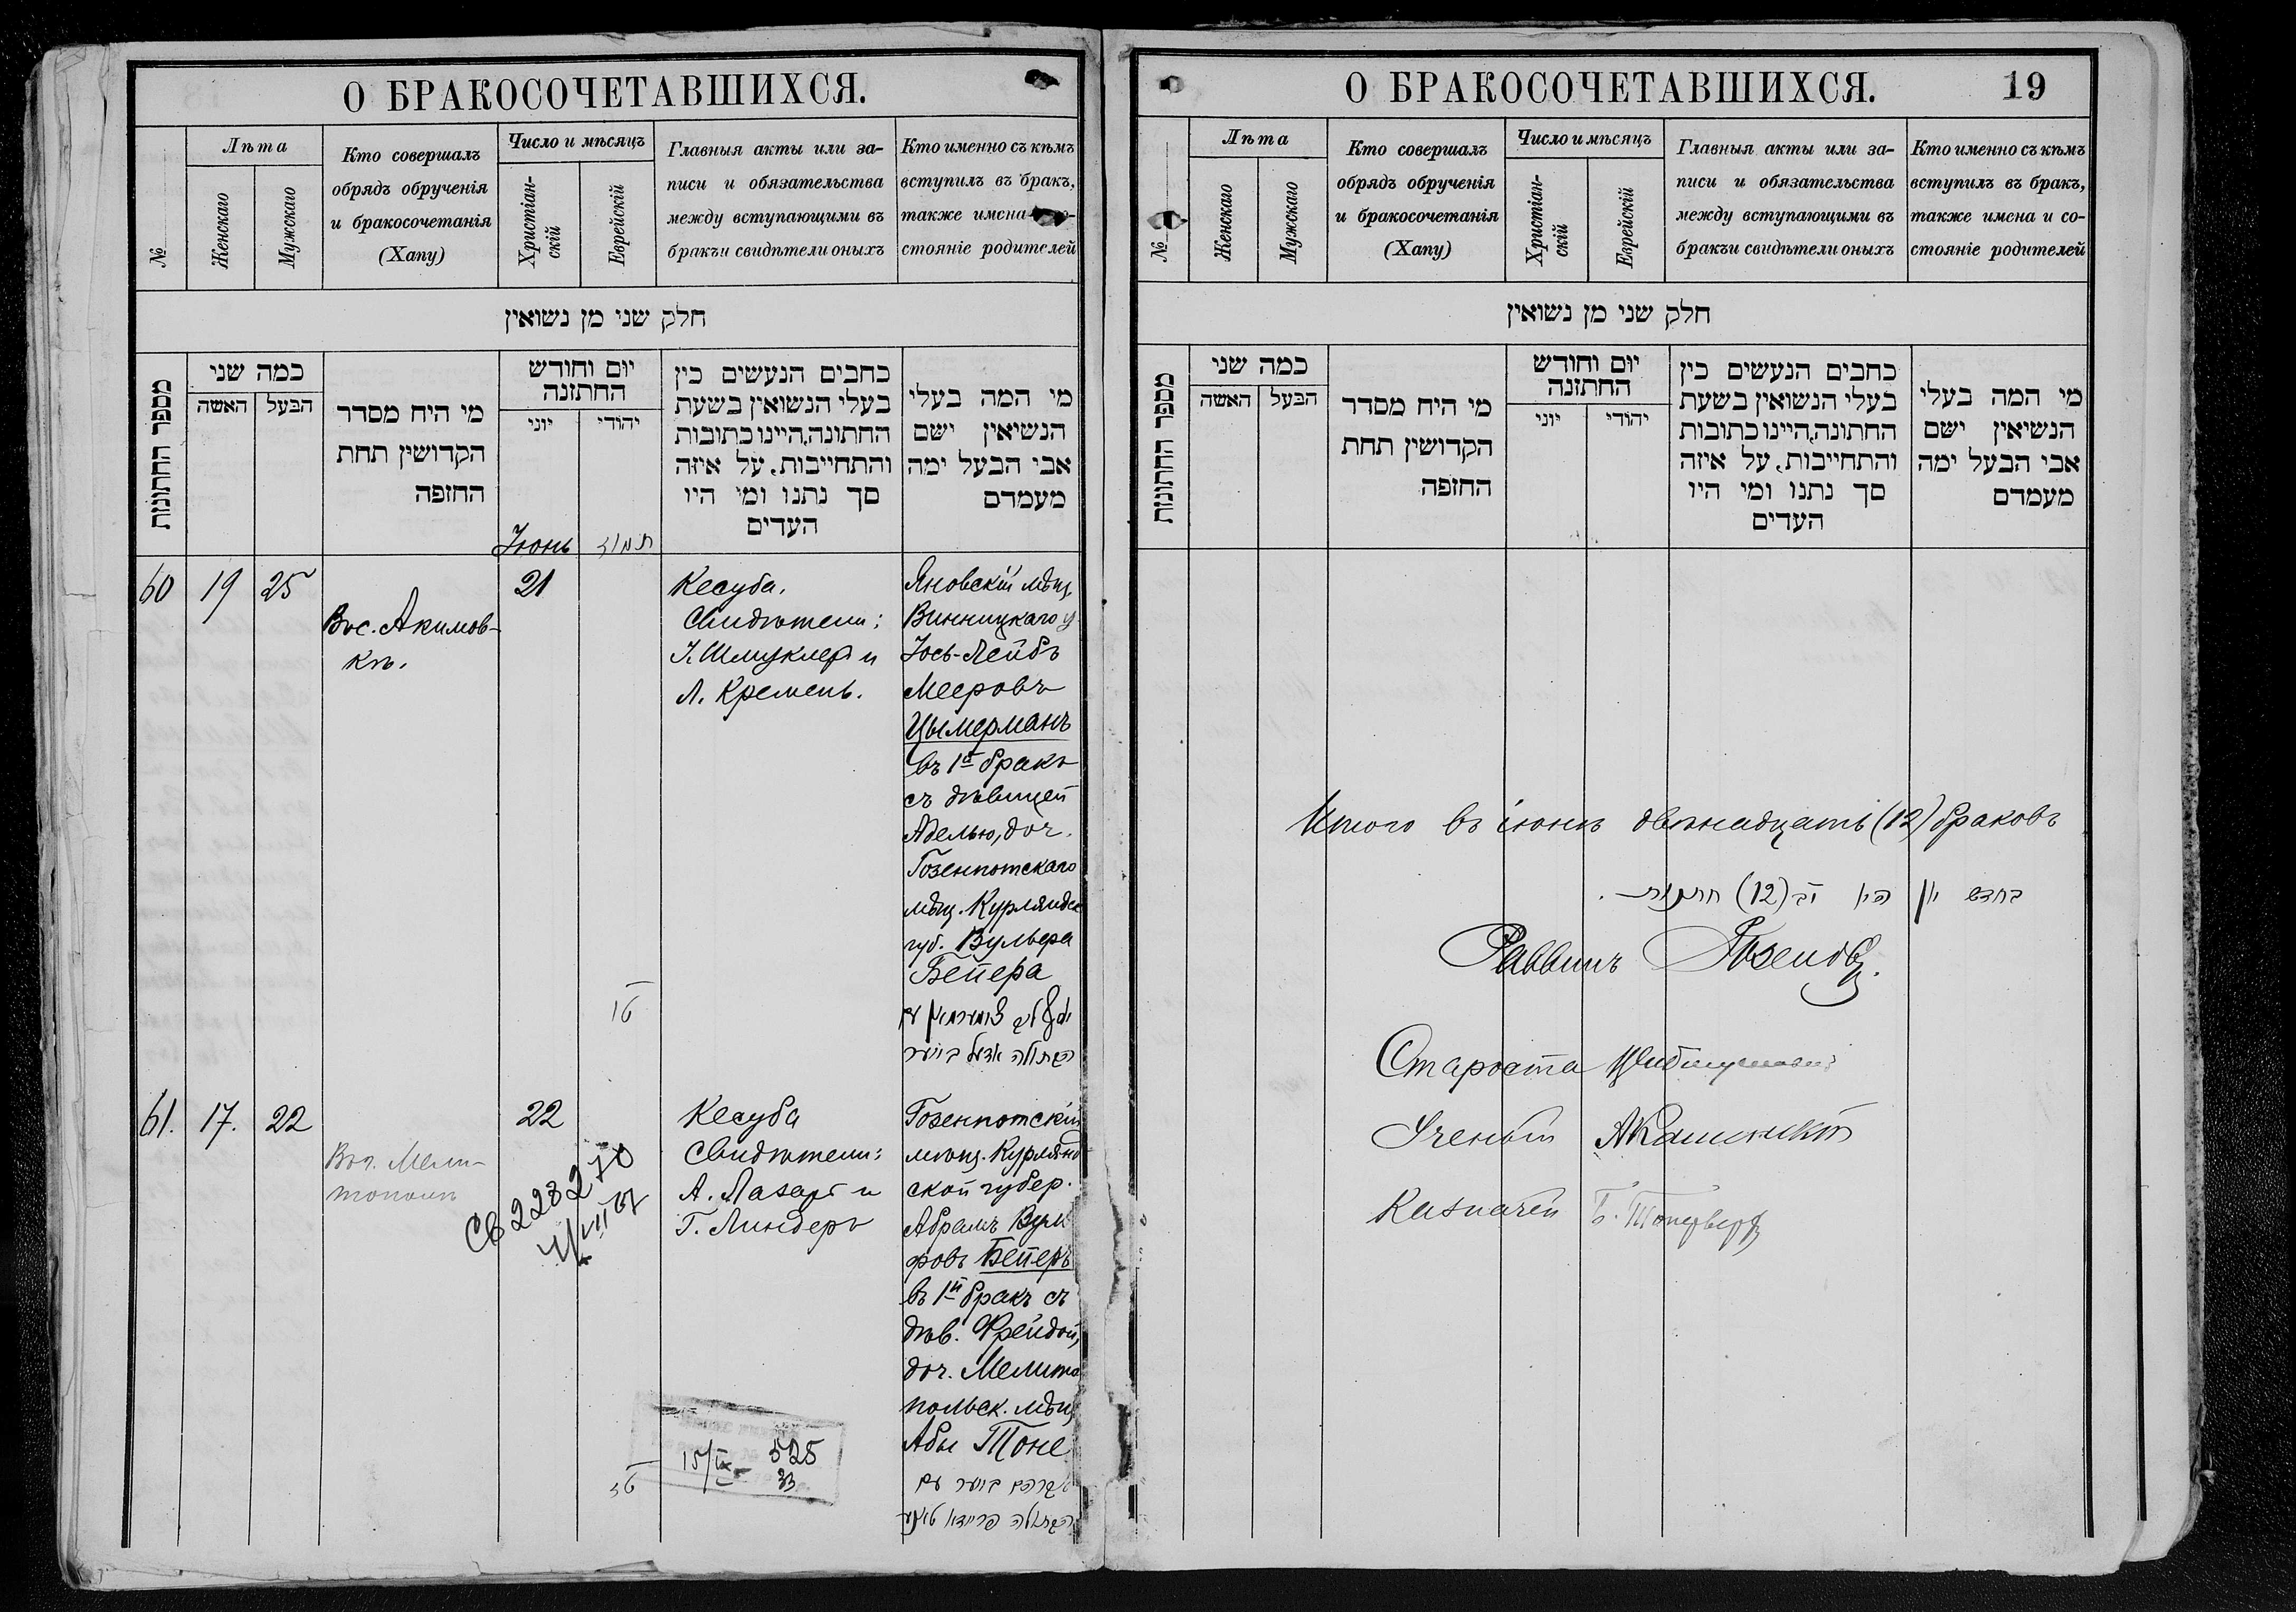 О БРАКОСОЧЕТАВШИХСЯ.
№
Лѣта
Женскаго
Мужскаго
Кто совершалъ
обрядъ обрученія
и бракосочетанія
(Хапу)
Число и мѣсяцъ
Христіан-
скій
Еврейскій
Главныя акты или за-
писи и обязательства
между вступающими въ
бракъ и свидѣтели оныхъ
Кто именно съ кѣмъ
вступилъ въ бракъ,
также имена
стояніе родителей
חלק שני מן נשואין
מספר החתונות
כמה שני
האשה
הבעל
מי היח מסדר
הקדושין תחת
החופה
יום וחודש
החתונה
יוני
יהודי
כחבים הנעשים כין
בעלי הנשואין בשעת
החתונה, היינו כתובות
והתחייבות, על איזה
סך נתנו ומי היו
העדים
מי המה בעלי
הנשיאין ישם
אבי הבעל ימה
מעמדם
Іюнь
תמוז
60
19
25
Вос. Акимов-
кѣ.
21
טו
Кесуба.
Свидѣтели:
І. Шмуклеръ и
Л. Кремень.
Яновскій мѣщ.
Винницкаго у
Іось-Лейбъ
Мееровъ
Цымерманъ
въ 1й бракъ
съ дѣвицей
Аделью, доч.
Гозенпотскаго
мѣщ. Курляндск
губ. Вульфа
Бейера
הבתולה אדעל בייער
61.
17.
22
Вос. Мели-
тополѣ
22
СВ 223270
Кесуба
Свидѣтели:
А. Лазаръ и
Г. Линдеръ
15/IX - 525
33
Гозенпотскій
мѣщ. Курлянд
ской губер.
Абрамъ Вуль
фовъ Бейеръ
въ 1й бракъ съ
дѣв. Фрейдой,
доч. Мелито
польск. мѣщ
Абы Топе
אברהם בייער עם
הבתולה פריידא
О БРАКОСОЧЕТАВШИХСЯ.
19
№
Лѣта
Женскаго
Мужскаго
Кто совершалъ
обрядъ обрученія
и бракосочетанія
(Хапу)
Число и мѣсяцъ
Христіан-
скій
Еврейскій
Главныя акты или за-
писи и обязательства
между вступающими въ
бракъ и свидѣтели оныхъ
Кто именно съ кѣмъ
вступилъ въ бракъ,
также имена и со-
стояніе родителей
חלק שני מן נשואין
מספר החתונות
כמה שני
האשה
הבעל
מי היח מסדר
הקדושין תחת
החופה
יום וחודש
החתונה
יוני
יהודי
כחבים הנעשים כין
בעלי הנשואין בשעת
החתונה, היינו כתובות
והתחייבות, על איזה
סך נתנו ומי היו
העדים
מי המה בעלי
הנשיאין ישם
אבי הבעל ימה
מעמדם
Итого въ іюнѣ двѣнадцать (12) браковъ
בחדש יוני היו יב (12) חתונות.
Раввинъ
Староста
Ученый
Казначей